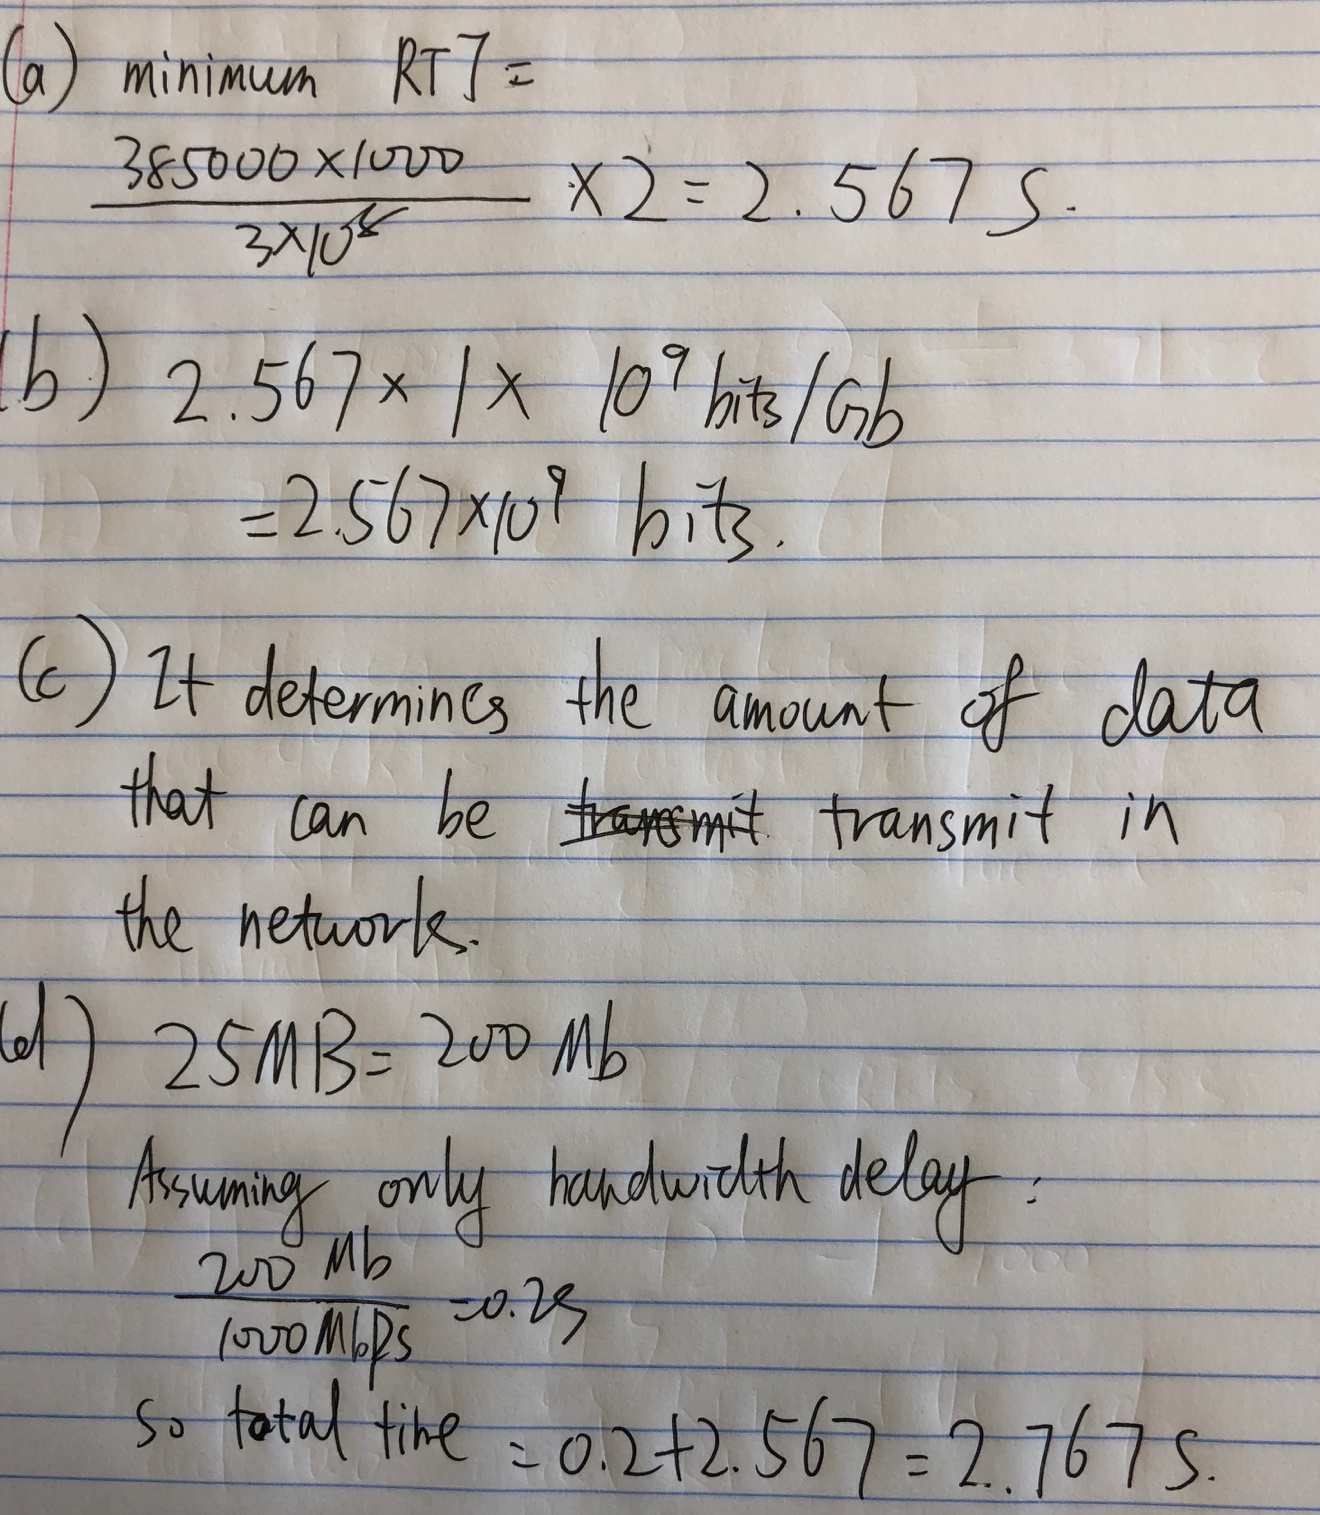 (a) minimum RTT =
385000 × 1000 / 3×10^8 × 2 = 2.567 s.
(b) 2.567 × 1 × 10^9 bits/Gb
= 2.567×10^9 bits.
(c) It determines the amount of data
that can be transmit transmit in
the network.
(d) 25MB = 200 Mb
Assuming only bandwidth delay :
200 Mb / 1000 Mbps = 0.2s
so total time = 0.2+2.567 = 2.767 s.